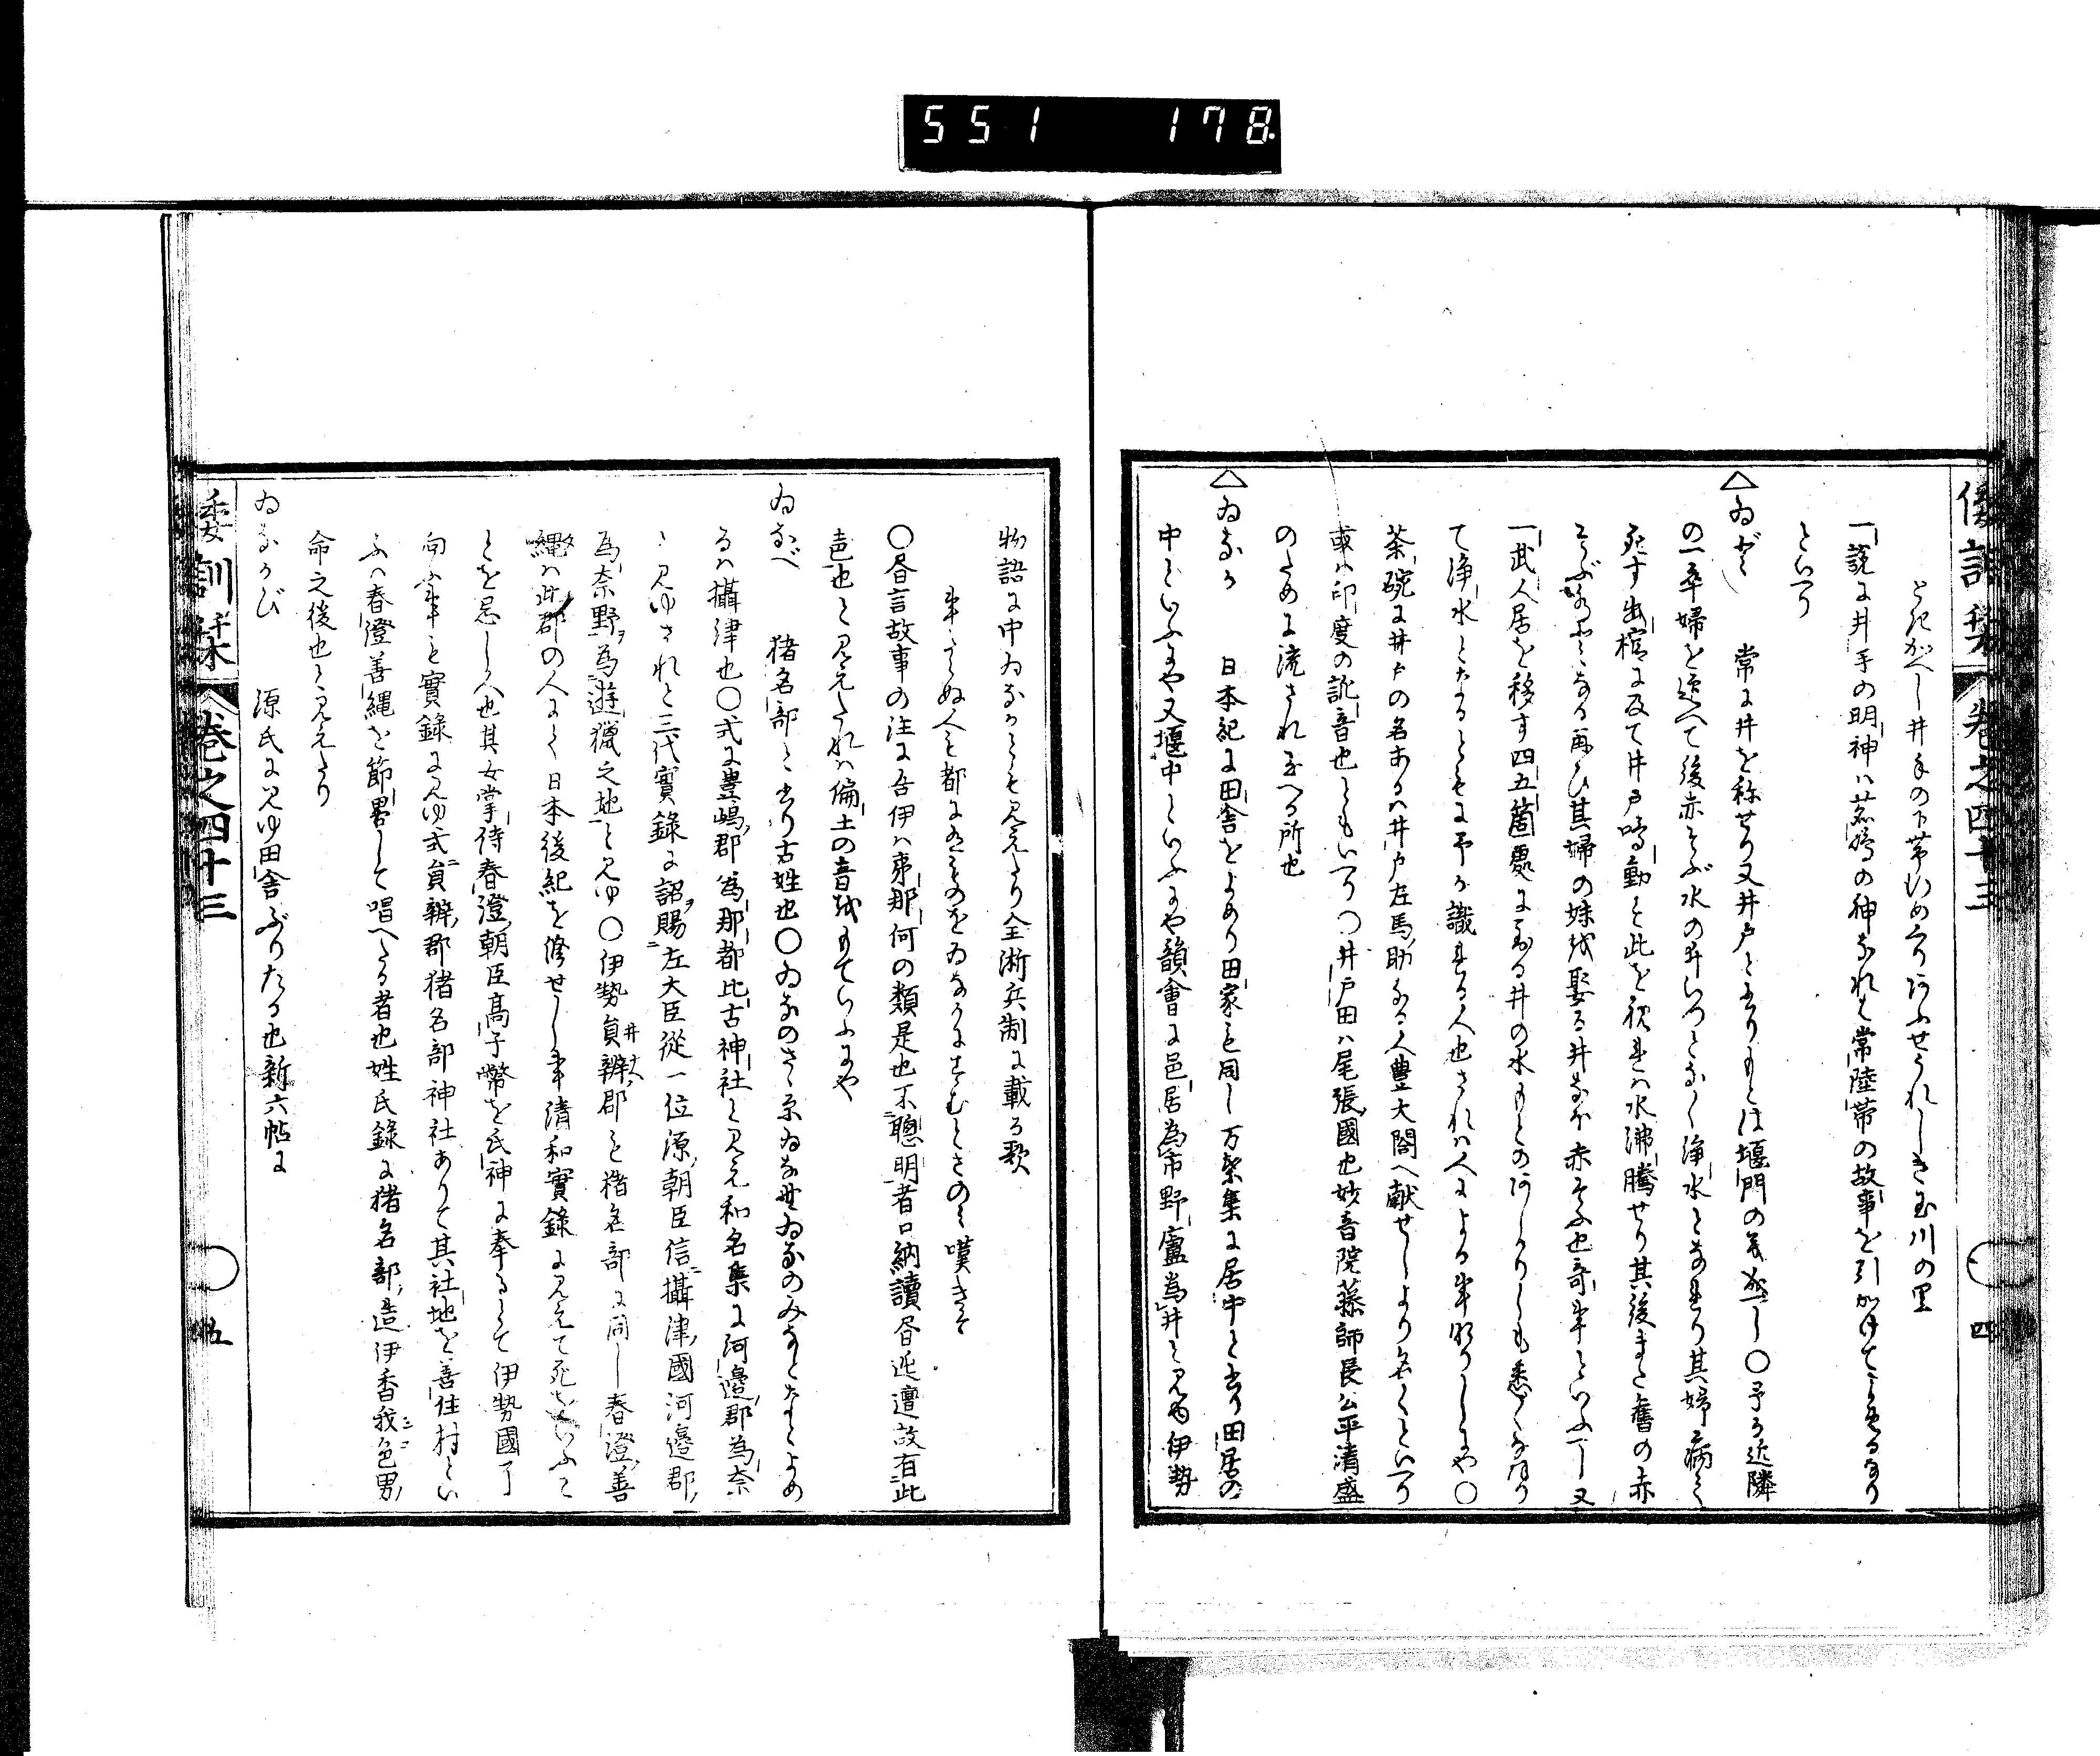 551 178
倭訓栞 巻之四十三 四
とき返し井手の下帯むめくりあふせうれしき玉川の里
一説に井手の明神ハ鹿嶋の神なれは常陸帯の故事を引かけてよめるなり
といへり
△ゐど 常に井を称せり又井戸と書りもとは堰門の義成へし〇予か近隣
の一卒婦を迎へて後赤そぶ水の井いつとなく浄水となれり其婦病て
死す出棺に及て井戸鳴動す此を視れハ水沸騰せり其後また舊の赤
そぶ水となる再ひ其婦の妹を娶る井なほ赤そふ也奇事といふへし又
一武人居を移す四五箇處に至る井の水もとのあしかりしも悉くなほり
て浄水となるともに予か識れる人也されハ人による事なりしにや〇
茶碗に井戸の名あるハ井戸左馬助なる人豊太閤へ献せしより名くといへり
或ハ印度の訛音也ともいへり〇井戸田ハ尾張國也妙音院藤師長公平清盛
のために流され玉へる所也
△ゐなか 日本紀に田舎をよめり田家も同し万葉集に居中と書り田居の
中といふにや又堰中といふにや韻會に邑居為市野廬為井と見ゆ伊勢
物語に中ゐなかとも見えたり全浙兵制に載る歌
事たらぬ人も都に有ものをゐなかにすむとさのミ嘆きそ
〇昏言故事の注に吾伊ハ夷那何の類是也不聰明者口納讀昏迍邅故有此
邑也と見えたれハ偏土の音をもていふにや
ゐなべ 猪名部と書り古姓也〇ゐなのさゝ原ゐな野ゐなのみなとなとよめ
るハ攝津也〇式に豊嶋郡為那都比古神社と見え和名集に河邉郡為奈
と見ゆされと三代實録に詔賜左大臣從一位源朝臣信攝津國河邉郡
為奈野為遊獵之地と見ゆ〇伊勢員辨郡も猪名部に同し春澄善
縄ハ此郡の人にて日本後紀を脩せし事清和實録に見えて死をいふこ
とを忌しハ也其女掌侍春澄朝臣髙子幣を氏神に奉るとて伊勢國に
向ふ事も實録に見ゆ式員辨郡猪名部神社ありて其社地を善住村とい
ふハ春澄善縄を節畧して唱へたる者也姓氏録に猪名部造伊香我色男
命之後也と見えたり
ゐなかび 源氏に見ゆ田舎ぶりたる也新六帖に
倭訓栞 巻之四十三 五